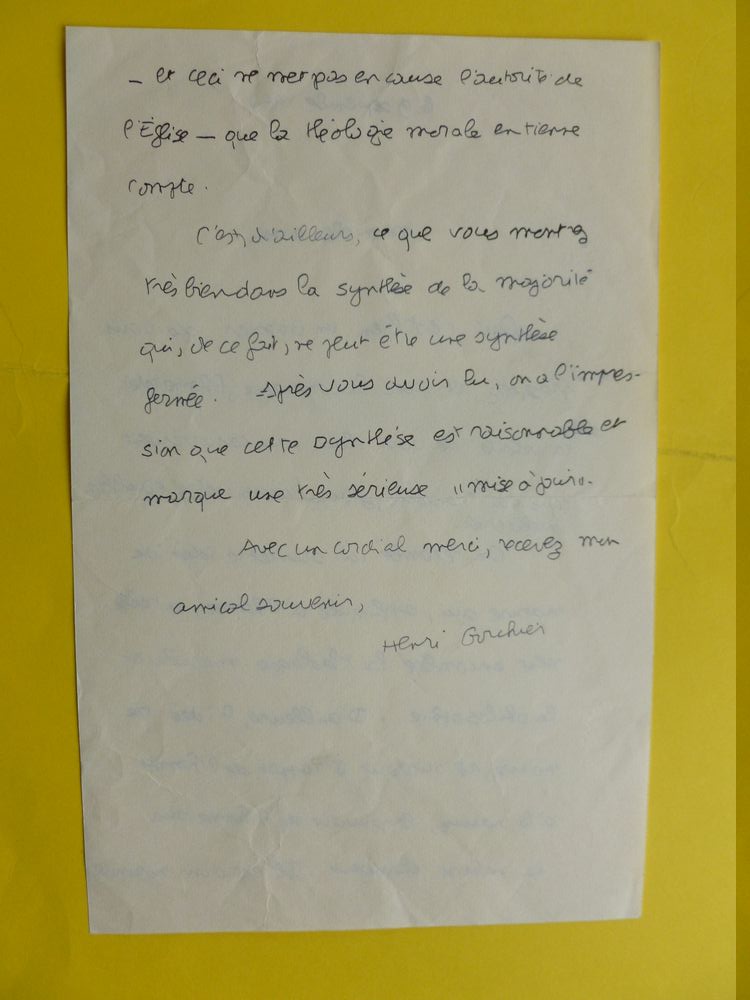 – et ceci ne met pas en cause l'autorité de
l'Église – que la théologie morale en tienne
compte.
C'est, d'ailleurs, ce que vous montrez
très bien dans la synthèse de la majorité
qui, de ce fait, ne peut être une synthèse
fermée. Après vous avoir lu, on a l'impres-
sion que cette synthèse est raisonnable et
marque une très sérieuse "mise à jour".
Avec un cordial merci, recevez mon
amical souvenir,
Henri Gouhier